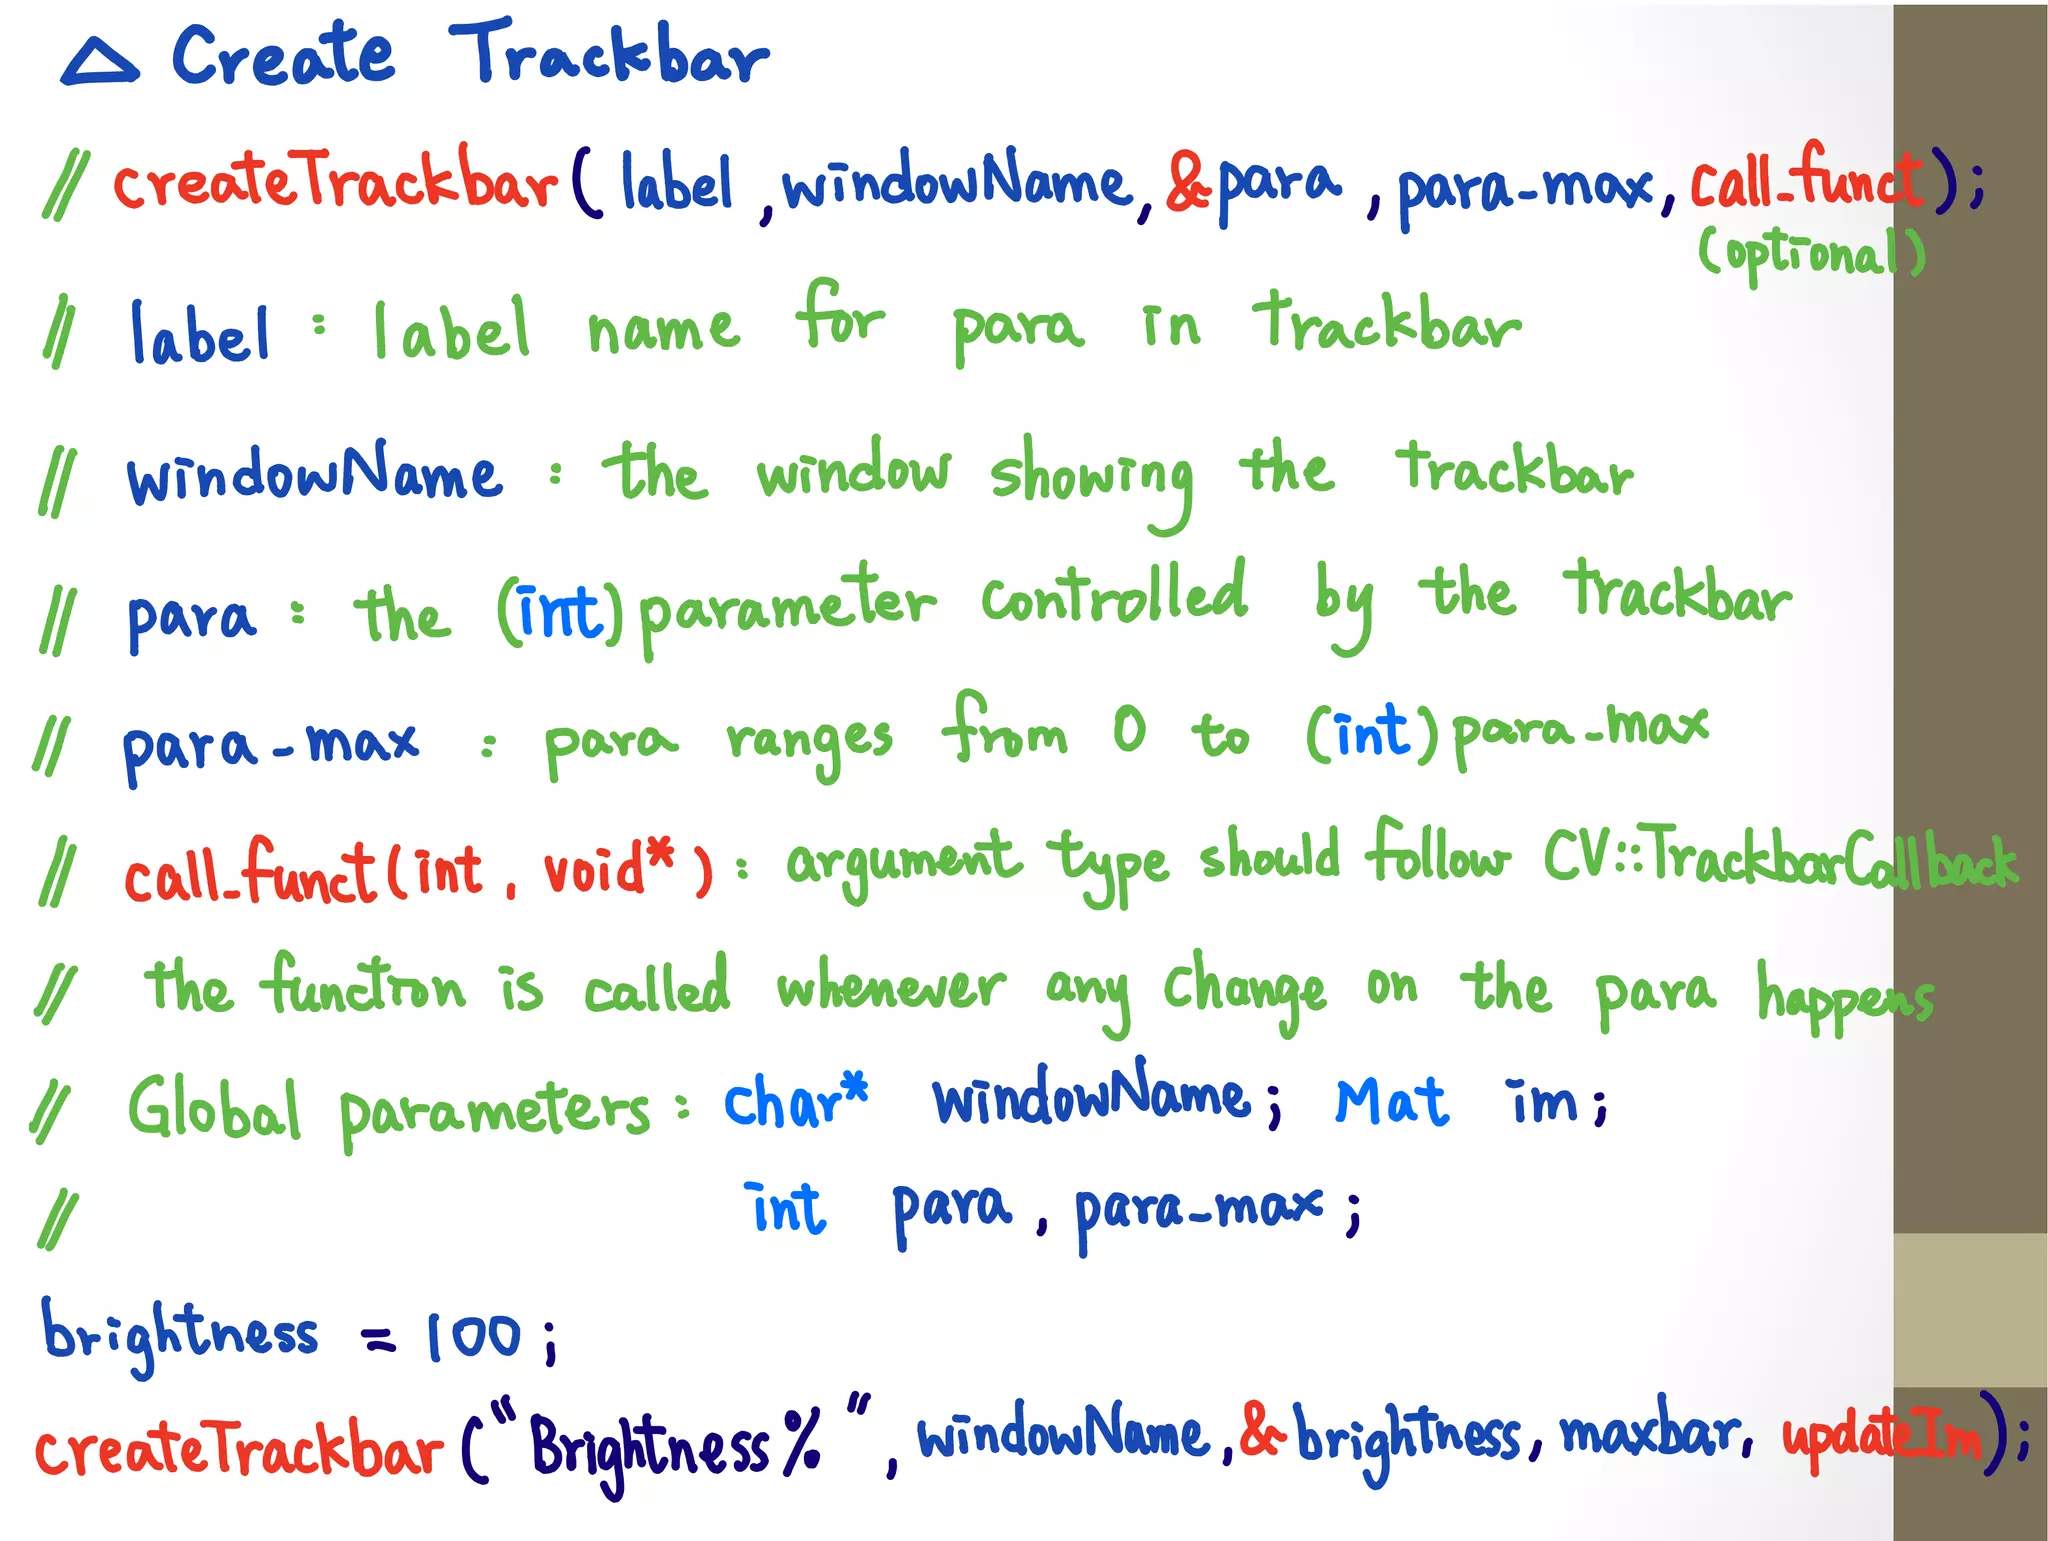 △ Create Trackbar
// createTrackbar( label , windowName, &para , para_max, call_funct);
(optional)
// label : label name for para in trackbar
// windowName : the window showing the trackbar
// para : the (int) parameter controlled by the trackbar
// para_max : para ranges from 0 to (int) para_max
// call_funct(int, void*) : argument type should follow CV::TrackbarCallback
// the function is called whenever any change on the para happens
// Global parameters : char* windowName; Mat im;
// int para, para_max;
brightness = 100;
createTrackbar("Brightness%", windowName, &brightness, maxbar, updateIm);